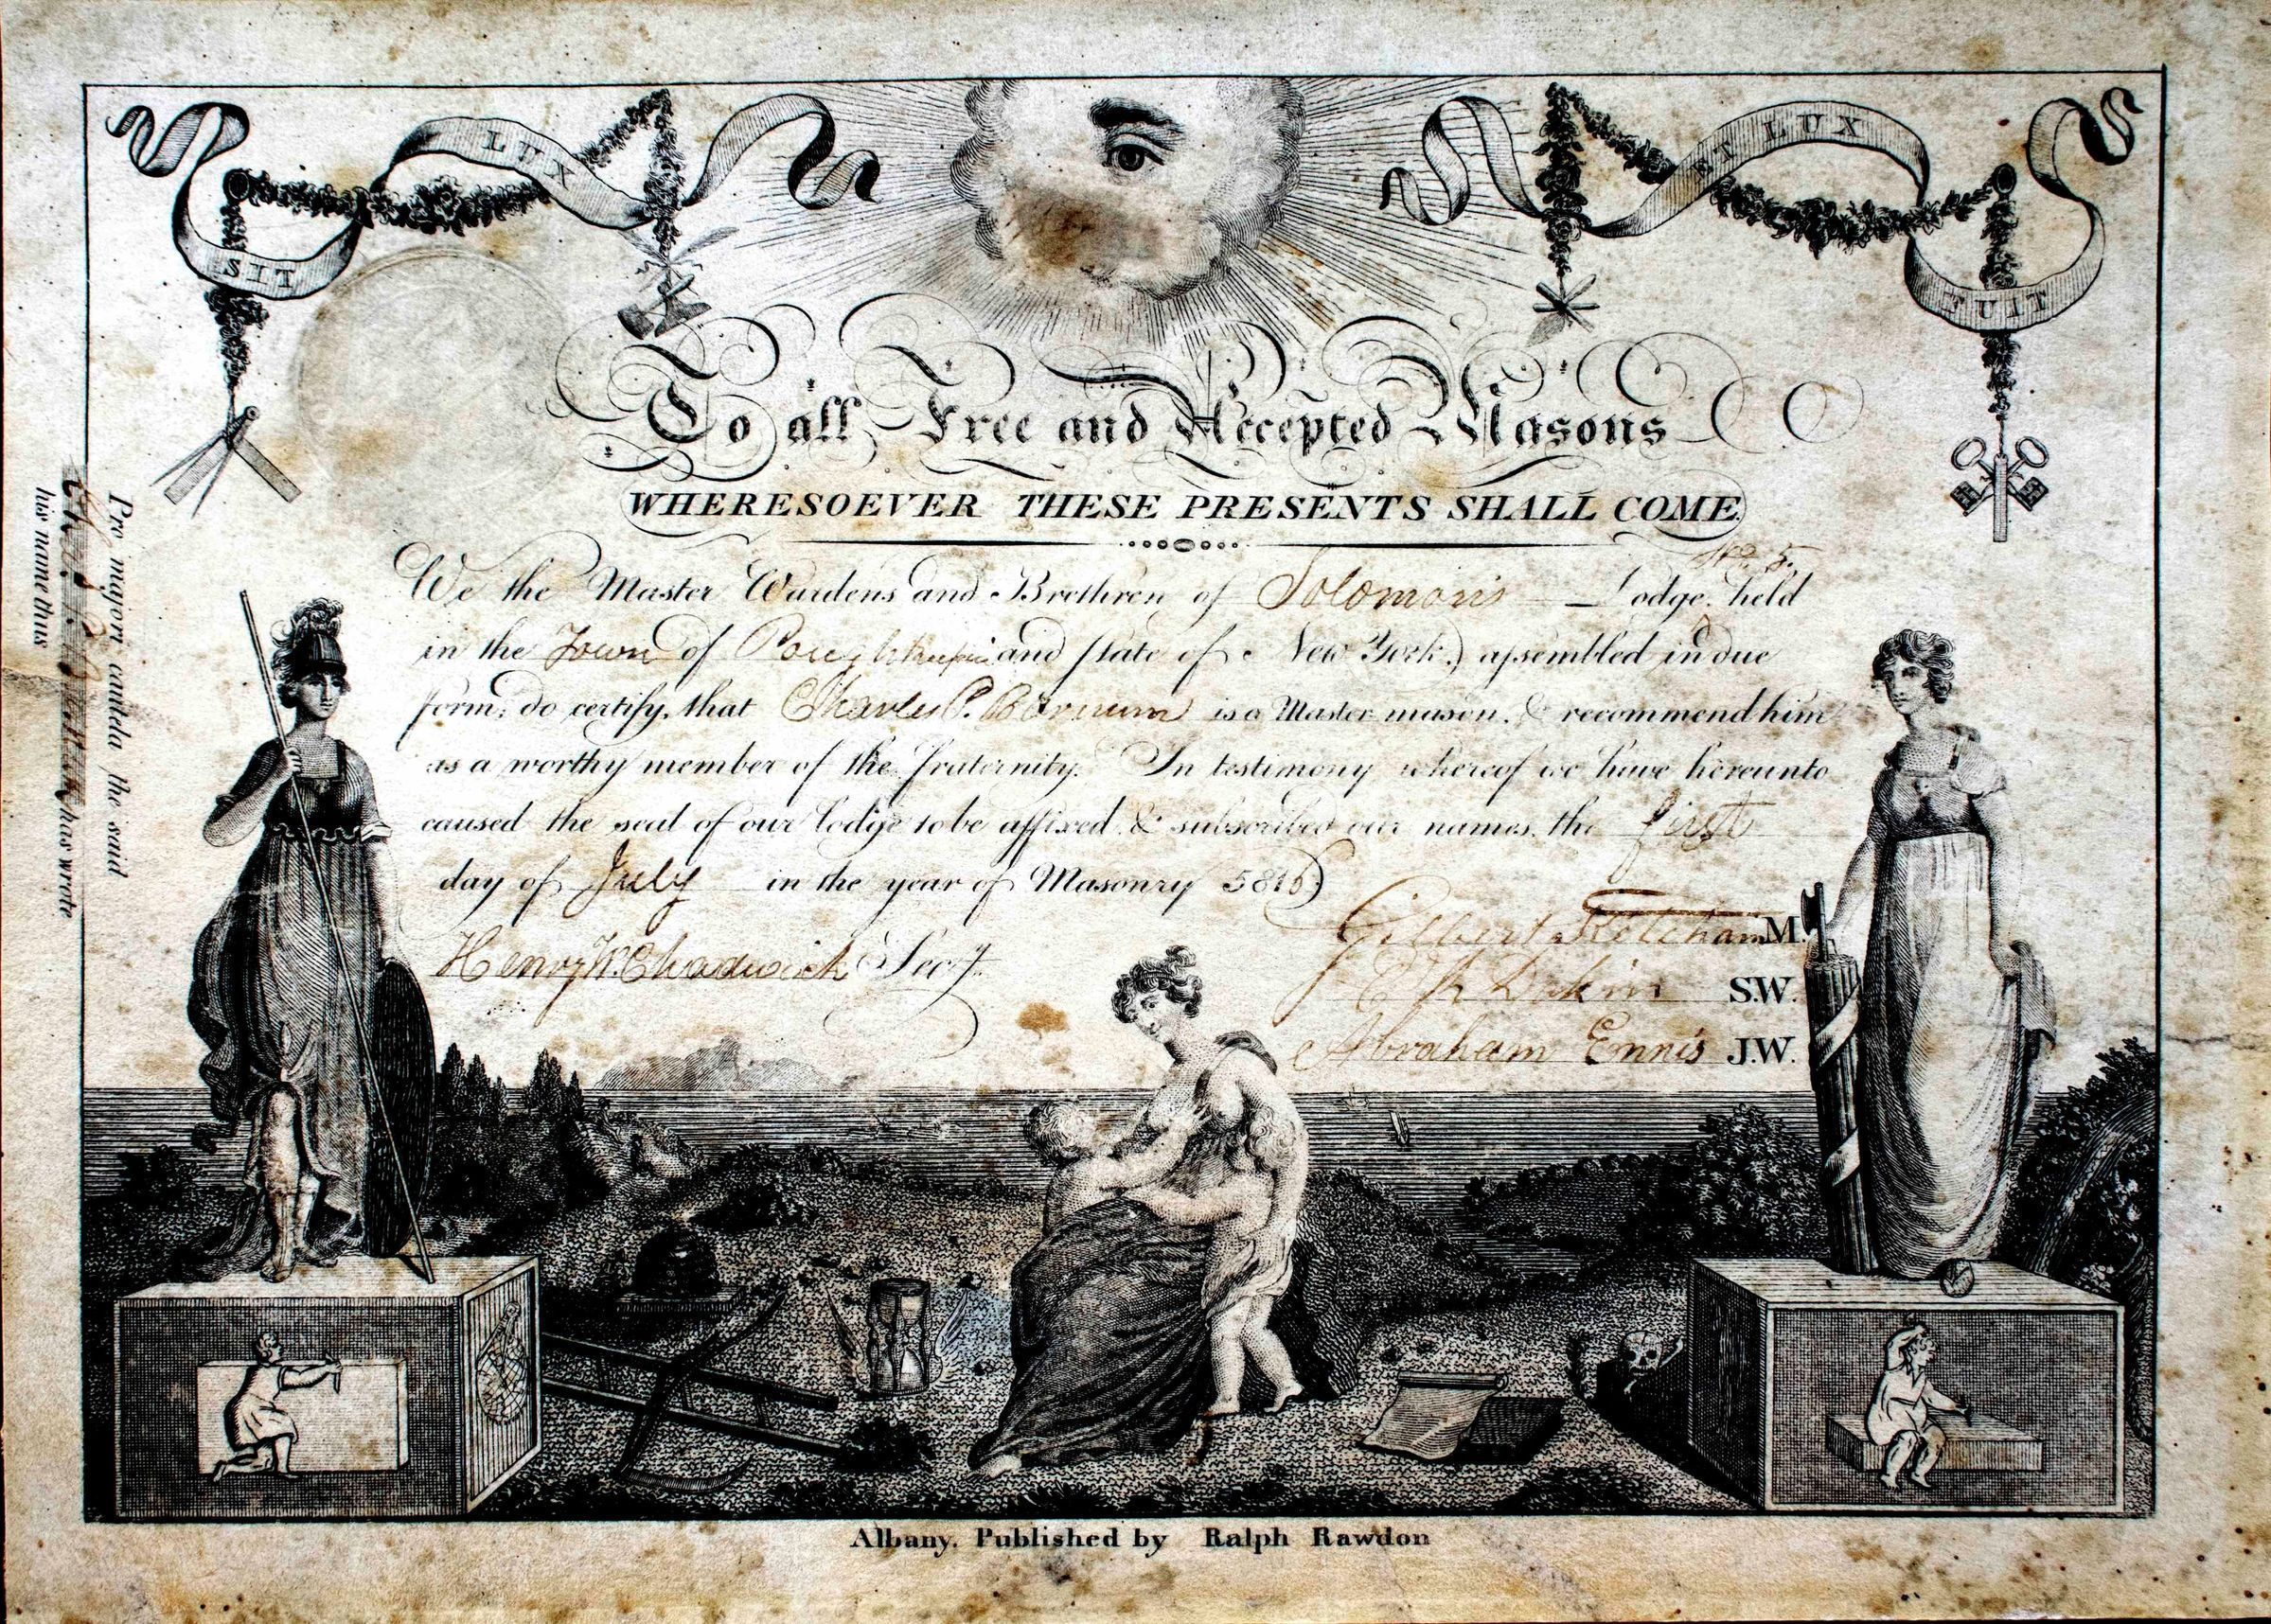 SIT LUX
ET LUX FUIT
To all Free and Accepted Masons
WHERESOEVER THESE PRESENTS SHALL COME
No. 5.
We the Master Wardens and Brethren of Solomon's Lodge, held
in the Town of Poughkeepsie and state of New York, assembled in due
form, do certify, that Charles P. is a Master mason, & recommend him
as a worthy member of the fraternity. In testimony whereof we have hereunto
caused the seal of our lodge to be affixed & subscribed our names, the first
day of July in the year of Masonry 5816
Gilbert Ketcham M.
Henry W. Chadwick Secy.
Dakin S.W.
Abraham Ennis J.W.
Pro majori cautela the said
has wrote
his name thus
Albany. Published by Ralph Rawdon